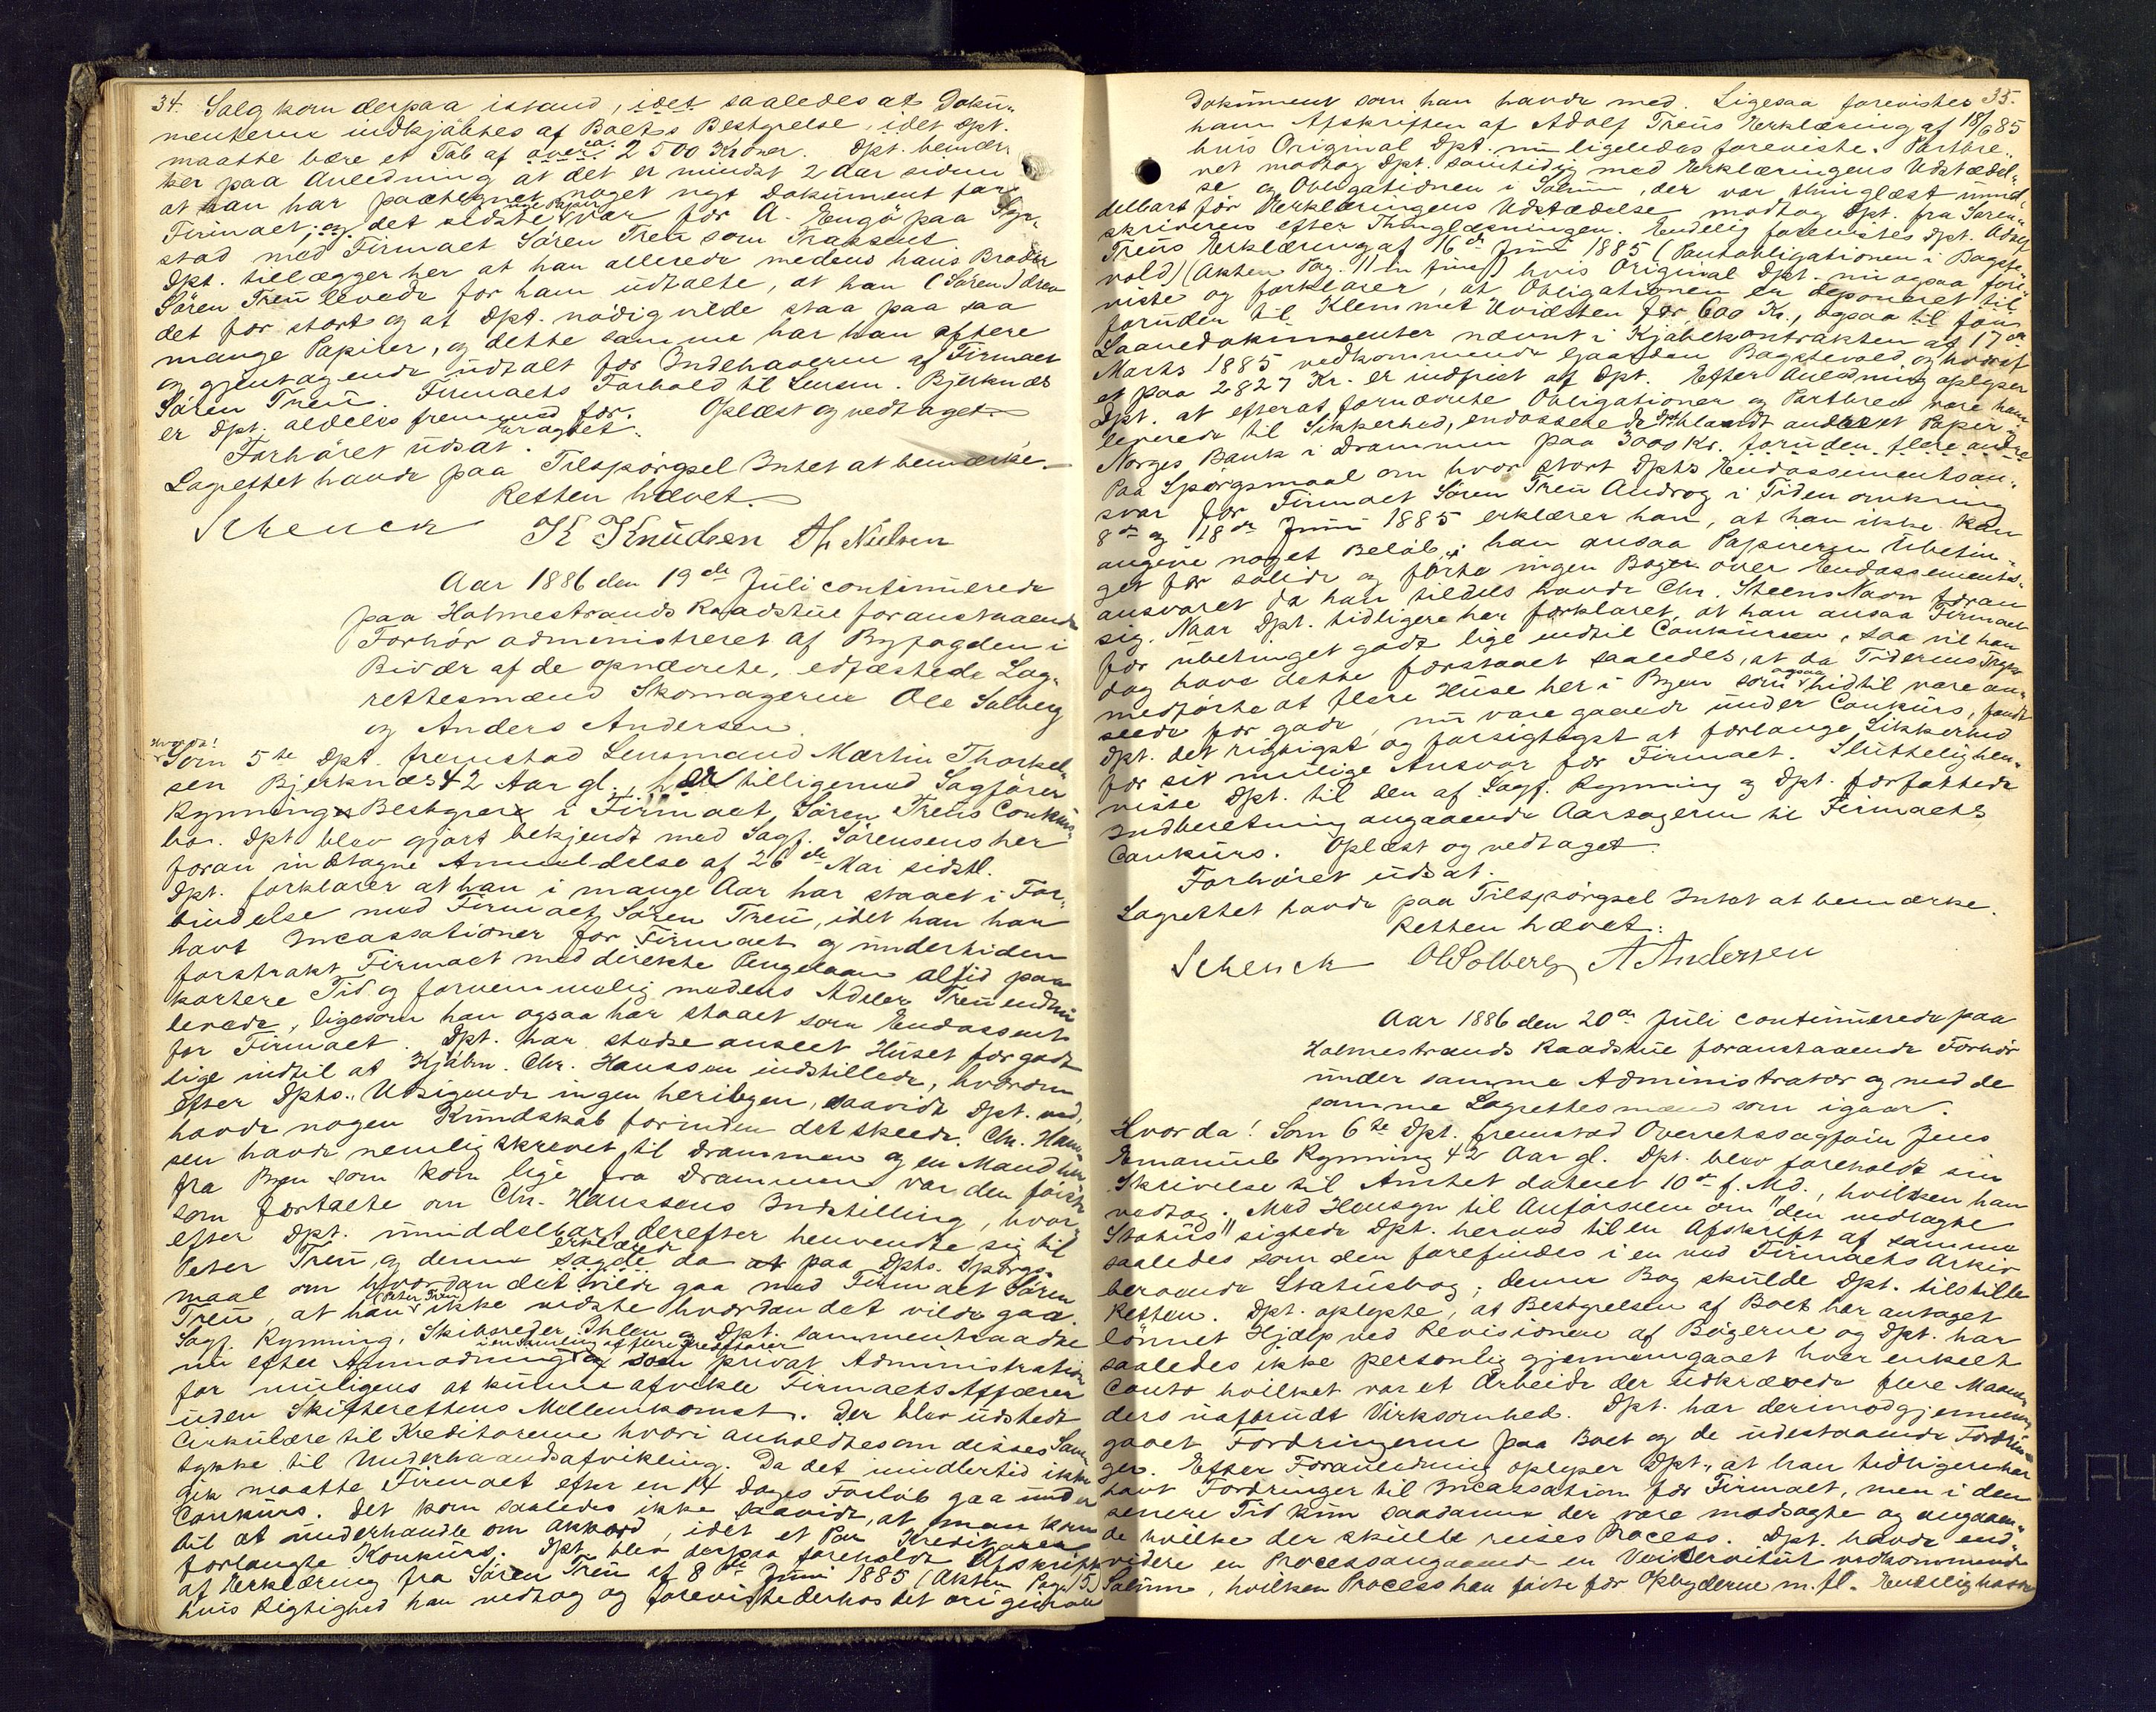 34. Salg kom derpaa istand, idet saaledes at Doku-
menterne indkjöbtes af Boets Bestyrelse, idet Dpt.
maatte bære et Tab af over ca. 2500 Kroner. Dpt. bemær-
ker paa Anledning at det er mindst 2 Aar siden
at han har paategnet noget nyt Dokument for
Firmaet; og det sidste nye Papir var for A. Engö paa
stad med Firmaet Sören Treu som Trassent.
Dpt. tillægger her at han allerede medens hans Broder
Sören Treu levede for ham udtalte, at han (Sören) drev
det for stort og at Dpt. nödig vilde staa paa saa
mange Papirer, og dette samme har han oftere
og gjentagende udtalt for Indehaverne af Firmaet
Sören Treu. Firmaets Forhold til Lensm. Bjerknæs
er Dpt. aldeles fremmed for. Oplæst og vedtaget.
Forhöret udsat.
Lagrettet havde paa Tilspörgsel Intet at bemærke.
Retten hævet.
Schenck K Knudsen Th Nielsen
Aar 1886 den 19de Juli continuerede
paa Holmestrands Raadstue foranstaaende
Forhör administreret af Byfogden i
Bivær af de opnævnte, edfæstede Lag-
rettesmænd Skomagerne Ole Solberg
og Anders Andersen.
Hvorda!
Som 5te Dpt. fremstod Lensmand Martin Thorkel-
sen Bjerknæs 42 Aar gl., er tilligemed Sagförer
Rynning Bestyrer i Firmaet Sören Treus Conkurs-
bo. Dpt. blev gjort bekjendt med Sagf. Sörensens her
foran indtagne Anmeldelse af 26de Mai sidstl.
Dpt. forklarer at han i mange Aar har staaet i For-
bindelse med Firmaet Sören Treu, idet han har
havt Incassationer for Firmaet og undertiden
forstrakt Firmaet med direkte Pengelaan altid paa
kortere Tid og fornemmelig medens Adeler Treu endnu
levede, ligesom han ogsaa har staaet som Endossent
for Firmaet. Dpt. har stedse anseet Huset for godt
lige indtil at Kjöbm. Chr. Hanssen indstillede, hvorom
efter Dpts. Udsigende ingen heribyen, saavidt Dpt. ved,
havde nogen Kundskab forinden det skeede. Chr. Hans-
sen havde nemlig skrevet til Drammen og en Mand her
fra Byen som kom lige fra Drammen var den förste
som fortalte om Chr. Hanssens Indstilling, hvor-
efter Dpt. umiddelbart derefter henvendte sig til
Peter Treu og denne sagde erklærede da at paa Dpts. Spörgs-
maal om hvordan det vilde gaa med Firmaet Sören
Treu, at han (Peter Treu) ikke vidste hvordan det vilde gaa.
Sagf. Rynning, Skibsreder Ihlen og Dpt. sammentraadte
nu efter Anmodning af flere Kreditorer som privat Administration
for muligens at kunne afvikle Firmaets Affærer
uden Skifterettens Mellemkomst. Der blev udstedt
Cirkulære til Kreditorerne hvori anholdtes om disses Sam-
tykke til Underhaandsafvikling. Da det imidlertid ikke
gik maatte Firmaet efter en 14 Dages Forløb gaa under
Conkurs. Det kom saaledes ikke saavidt, at man kom
til at underhandle om Akkord, idet et Par Kreditorer
forlangte Konkurs. Dpt. blev derpaa foreholdt Afskrift
af Erklæring fra Sören Treu af 8de Juni 1885 (Akten Pag. 15)
hvis Rigtighed han vedtog og foreviste derhos det originale
35.
Dokument som han havde med. Ligesaa forevistes
ham Afskriften af Adolf Treus Erklæring af 18/6 85
hvis Original Dpt. nu ligeledes foreviste. Partbre-
vet modtog Dpt. samtidig med Erklæringens Udstædel-
se og Obligationen i Solum, der var thinglæst umid-
delbart för Erklæringens Udstædelse modtog Dpt. fra Soren-
skriveren efter Thinglæsningen. Endelig forevistes Dpt. Adolf
Treus Erklæring af 16de Juni 1885 (Pantobligationen i Bagste-
vold) (Akten Pag. 11 in fine) hvis Original Dpt. nu ogsaa fore-
viste og forklarer, at Obligationen er deponeret til
foruden til Klemmet Hvidsten for 600 Kr., ogsaa til for
Laanedokumenter nævnt i Kjöbekontrakten af 17de
Marts 1885 vedkommende Gaarden Bagstevold og hvoraf
et paa 2827 Kr. er indfriet af Dpt. Efter Anledning oplyser
Dpt. at efterat fornævnte Obligationer og Partbrev vare ham
leverede til Sikkerhed, endosserede Dpt. blandt andet et Papir i
Norges Bank i Drammen paa 3000 Kr. foruden flere andre
Paa Spörgsmaal om hvor stort Dpts Endossementsan-
svar for Firmaet Sören Treu Androg i Tiden omkring
8de og 18de Juni 1885 erklærer han, at han ikke kan
angive noget Belöb; han ansaa Papirerne Ubetin-
get for solide og förte ingen Bog over Endossements-
ansvaret da han tildels havde Chr. Steens Navn foran
sig. Naar Dpt. tidligere har forklaret, at han ansaa Firmaet
for ubetinget godt lige indtil Conkursen, saa vil han
dog have dette forstaaet saaledes, at da Tidernes Tryk
medförte at flere Huse her i Byen som ogsaa hidtil vare an-
seede for gode, nu vare gaaede under Conkurs, fandt
Dpt. det rigtigst og forsigtigst at forlange Sikkerhed
for sit mulige Ansvar for Firmaet. Sluttelig hen-
viste Dpt. til den af Sagf. Rynning og Dpt. forfattede
Indberetning angaaende Aarsagerne til Firmaets
Conkurs. Oplæst og vedtaget.
Forhöret udsat.
Lagrettet havde paa Tilspörgsel Intet at bemærke.
Retten hævet.
Schenck OlSolberg AAndersen
Aar 1886 den 20de Juli continuerede paa
Holmestrands Raadstue foranstaaende Forhör
under samme Administrator og med de
samme Lagrettesmænd som igaar.
Hvorda! Som 6te Dpt. fremstod Overretssagförer Jens
Emanuel Rynning 42 Aar gl. Dpt. blev foreholdt sin
Skrivelse til Amtet dateret 10de f. Md., hvilken han
vedtog. Med Hensyn til Anförselen om "den vedlagte
Status" sigtede Dpt. herved til en Afskrift af samme
saaledes som den forefindes i en ved Firmaets Arkiv
beroende Statusbog; denne Bog skulde Dpt. tilstille
Retten. Dpt. oplyste, at Bestyrelsen af Boet har antaget
lönnet Hjælp ved Revisionen af Bögerne og Dpt. har
saaledes ikke personlig gjennemgaaet hver enkelt
Conto hvilket var et Arbeide der udkrævede flere Maane-
ders uafbrudt Virksomhed. Dpt. har derimod gjennem-
gaaet Fordringerne paa Boet og de udestaaende Fordrin-
ger. Efter Foranledning oplyser Dpt. at han tidligere har
havt Fordringer til Incassation for Firmaet, men i den
senere Tid kun saadanne der vare modsagte og angaaen-
de hvilke der skulle reises Process. Dpt. havde end-
videre en Process angaaende en Veiservitut vedkommende
Solum, hvilken Process han förte for Opbyderne m. fl. Endelig havde